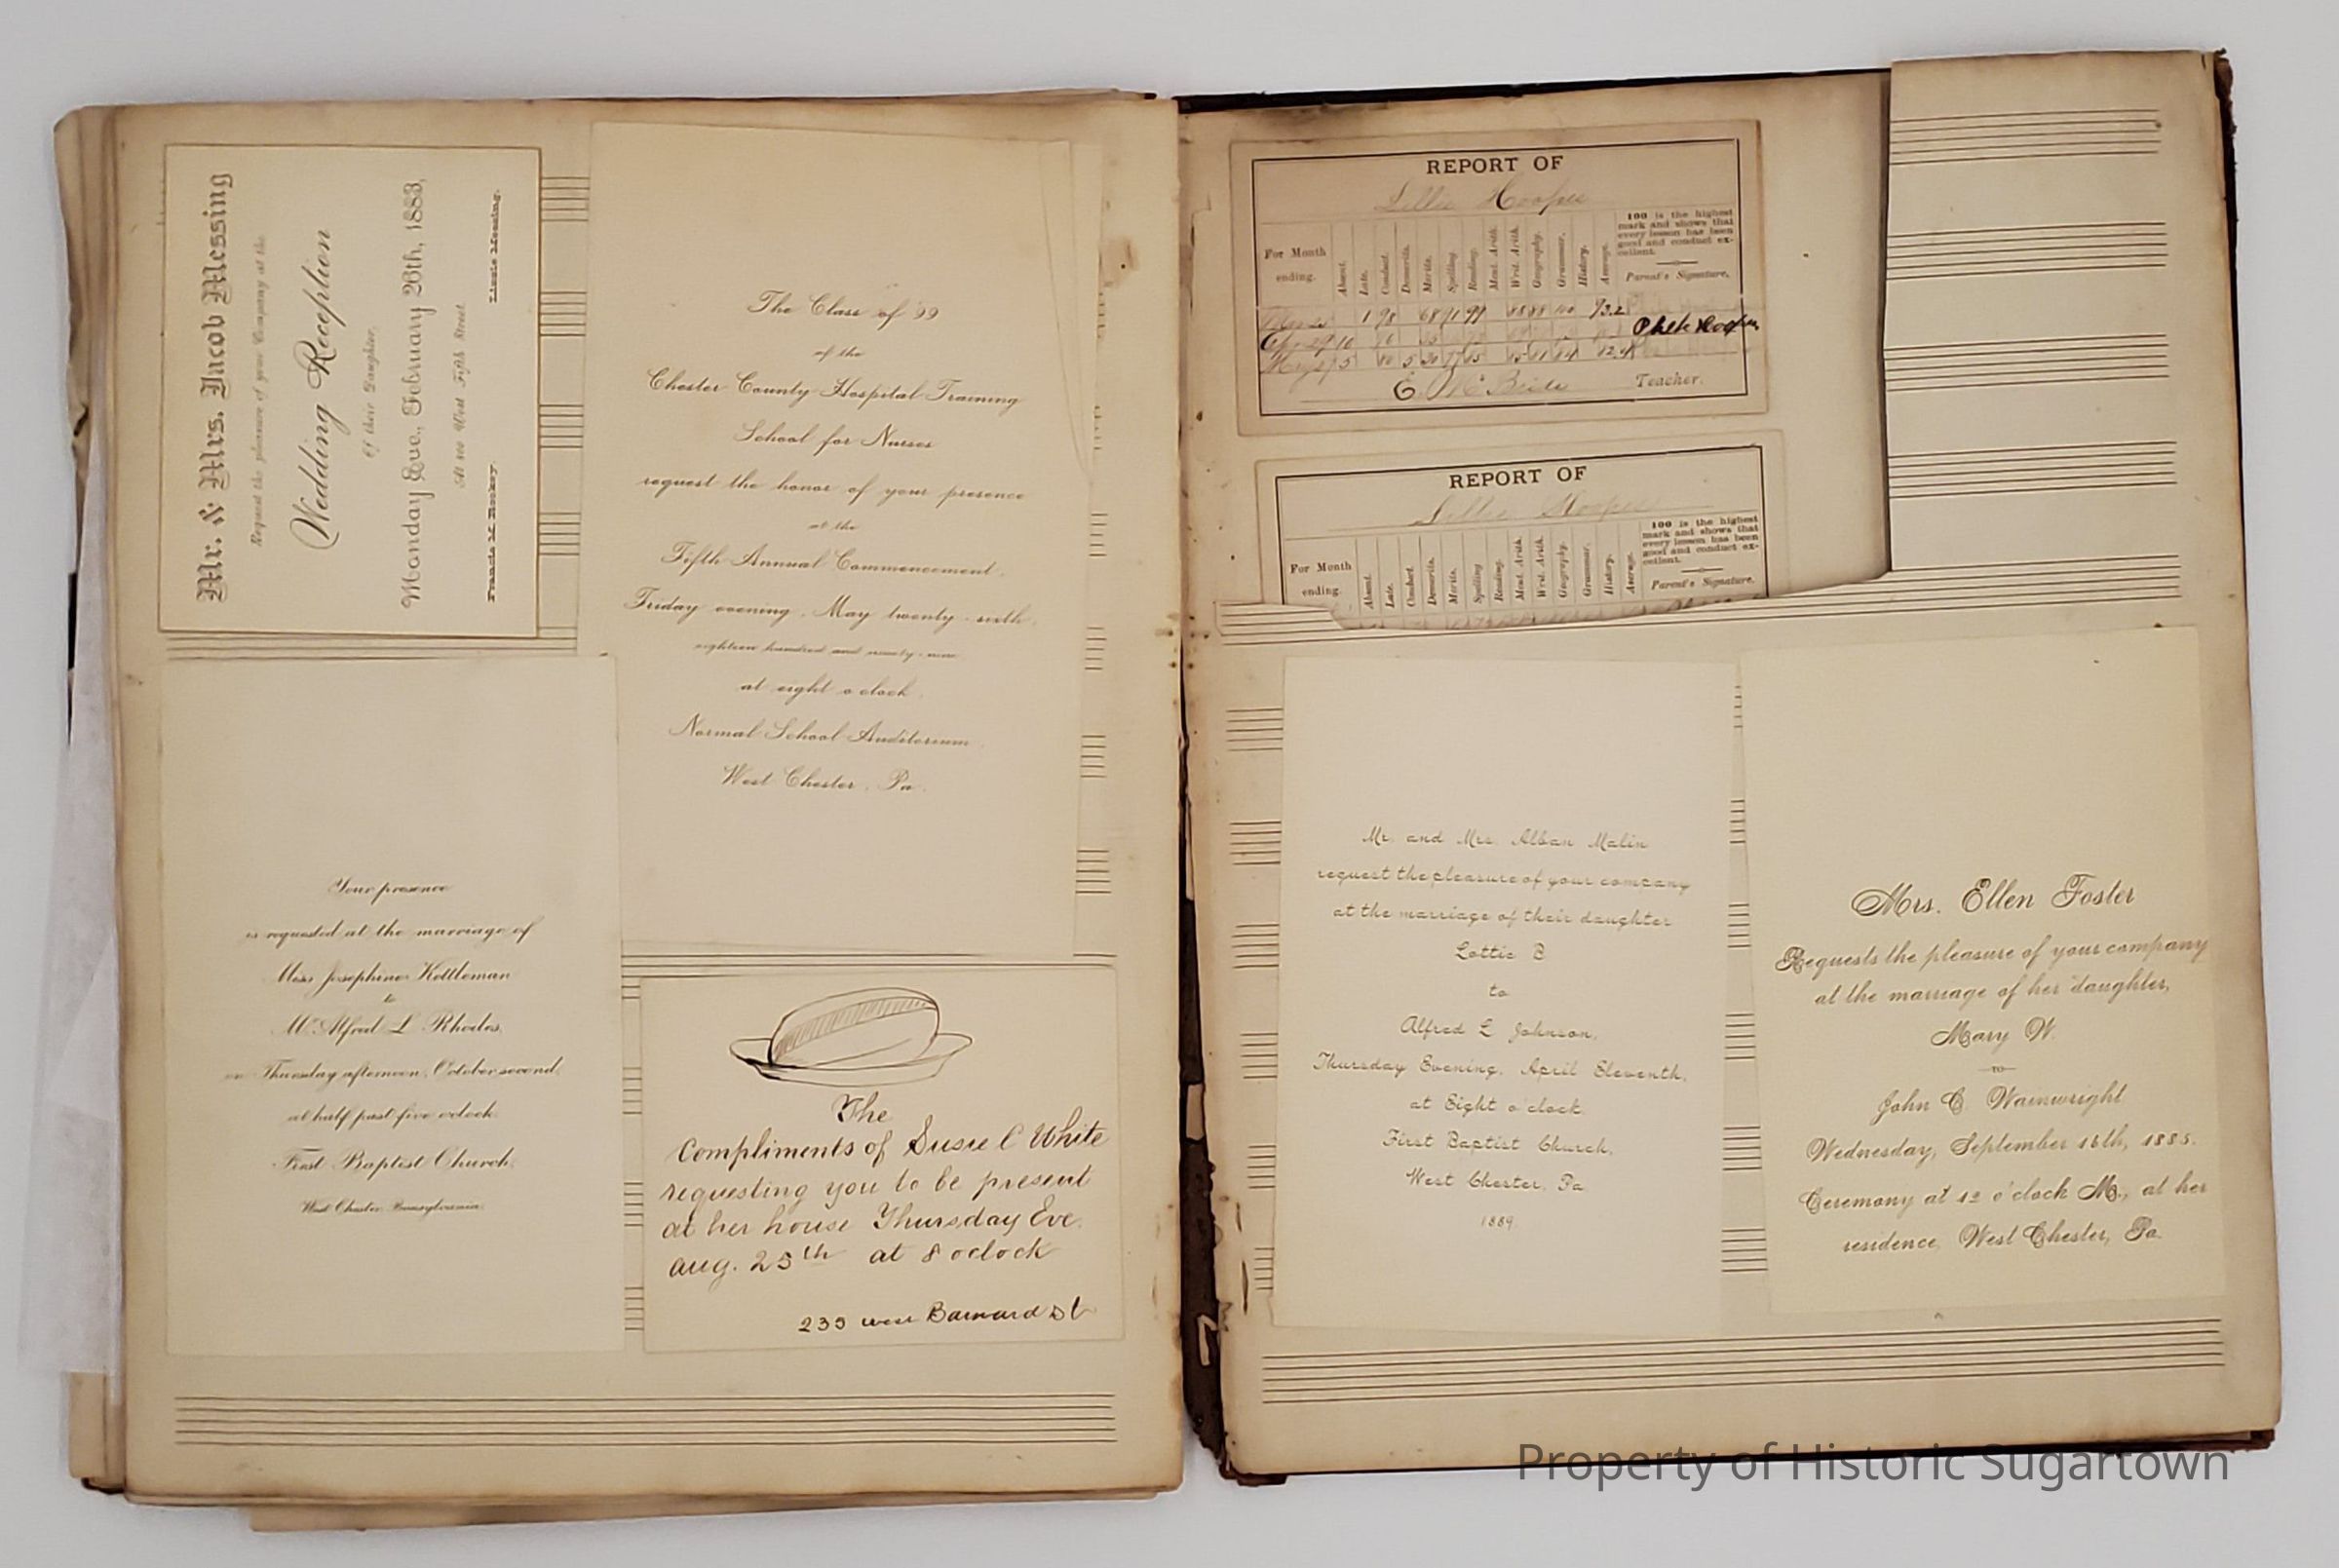 Mr. & Mrs. Jacob Messing
Request the pleasure of your Company at the
Wedding Reception
Of their Daughter,
Monday Eve., February 26th, 1883,
At 100 West Fifth Street
Lizzie Messing.
The Class of '99
of the
Chester County Hospital Training
School for Nurses
request the honor of your presence
at the
Fifth Annual Commencement,
Friday evening, May twenty-sixth,
eighteen hundred and ninety-nine
at eight o'clock,
Normal School Auditorium,
West Chester, Pa.
Your presence
is requested at the marriage of
Miss Josephine Kettleman
to
Mr. Alfred L. Rhodes,
on Thursday afternoon, October second,
at half past five o'clock.
First Baptist Church,
West Chester Pennsylvania.
The
Compliments of Susie C White
requesting you to be present
at her house Thursday Eve.
aug. 25th at 8 oclock
235 west Barnard St
REPORT OF
Lillie Hoopes
100 is the highest
mark and shows that
every lesson has been
good and conduct ex-
cellent.
For Month
ending.
Absent.
Late.
Conduct.
Demerits.
Merits.
Spelling
Reading.
Ment. Arith.
Wrt. Arith.
Geography.
Grammar.
History.
Average.
Parent's Signature.
Hoopes
Teacher.
REPORT OF
Lillie Hoopes
100 is the highest
mark and shows that
every lesson has been
good and conduct ex-
cellent.
For Month
ending.
Absent.
Late.
Conduct.
Demerits.
Merits.
Spelling
Reading.
Ment. Arith.
Wrt. Arith.
Geography.
Grammar.
History.
Average.
Parent's Signature.
Mr. and Mrs. Alban Malin
request the pleasure of your company
at the marriage of their daughter
Lottie B
to
Alfred L Johnson,
Thursday Evening, April Eleventh,
at Eight o'clock
First Baptist Church,
West Chester, Pa.
1889.
Mrs. Ellen Foster
Requests the pleasure of your company
at the marriage of her daughter,
Mary W.
TO
John C. Wainwright
Wednesday, September 16th, 1885.
Ceremony at 12 o'clock M., at her
residence, West Chester, Pa.
Property of Historic Sugartown